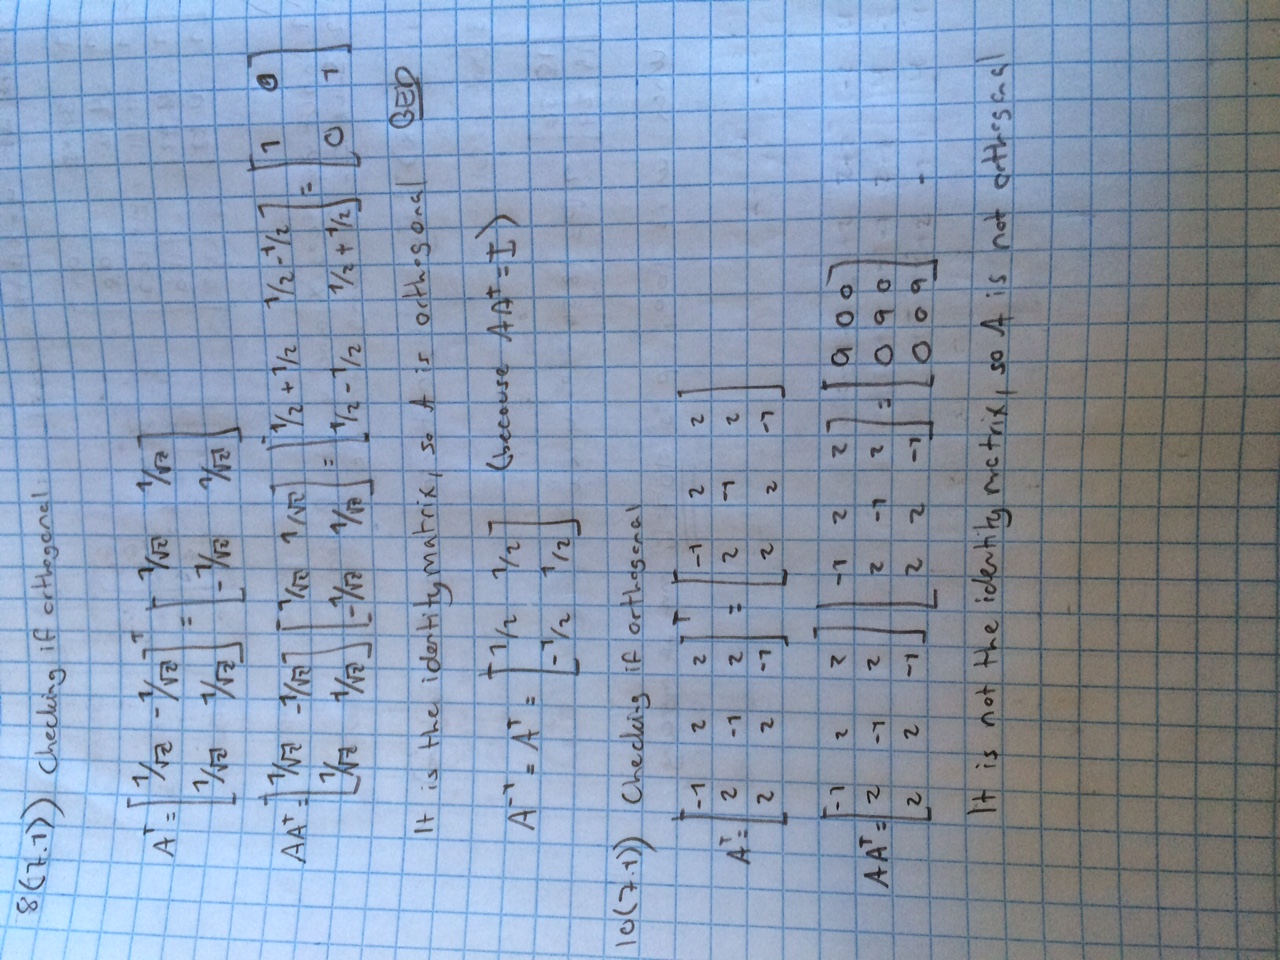 8(7.1)) Checking if orthogonal
Aᵀ = [1/√2 -1/√2; 1/√2 1/√2]ᵀ = [1/√2 1/√2; -1/√2 1/√2]
AAᵀ = [1/√2 -1/√2; 1/√2 1/√2] [1/√2 1/√2; -1/√2 1/√2] = [1/2 + 1/2 1/2 - 1/2; 1/2 - 1/2 1/2 + 1/2] = [1 0; 0 1]
It is the identity matrix, so A is orthogonal QED
A⁻¹ = Aᵀ = [1/2 1/2; -1/2 1/2] (because AAᵀ = I)
10(7.1)) Checking if orthogonal
Aᵀ = [-1 2 2; 2 -1 2; 2 2 -1]ᵀ = [-1 2 2; 2 -1 2; 2 2 -1]
AAᵀ = [-1 2 2; 2 -1 2; 2 2 -1] [-1 2 2; 2 -1 2; 2 2 -1] = [9 0 0; 0 9 0; 0 0 9]
It is not the identity matrix, so A is not orthogonal